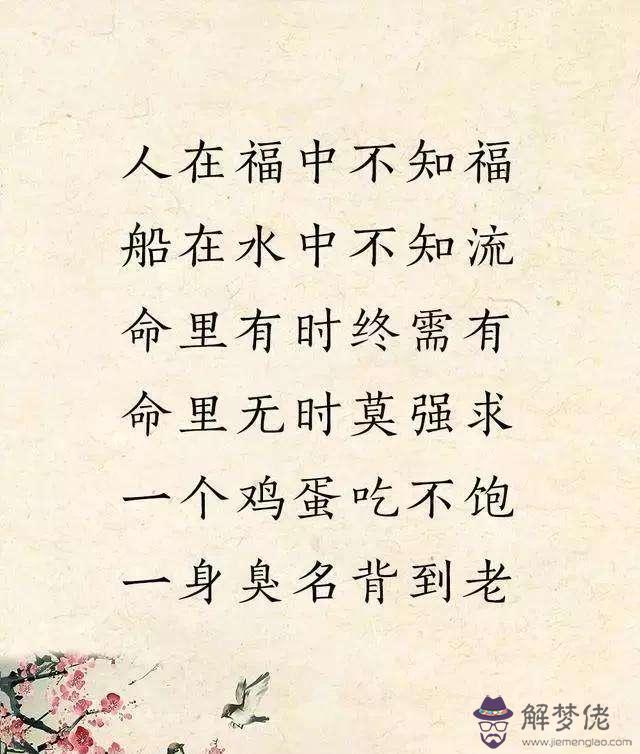 人在福中不知福
船在水中不知流
命里有时终需有
命里无时莫强求
一个鸡蛋吃不饱
一身臭名背到老
解梦佬
www.jiemenglao.com